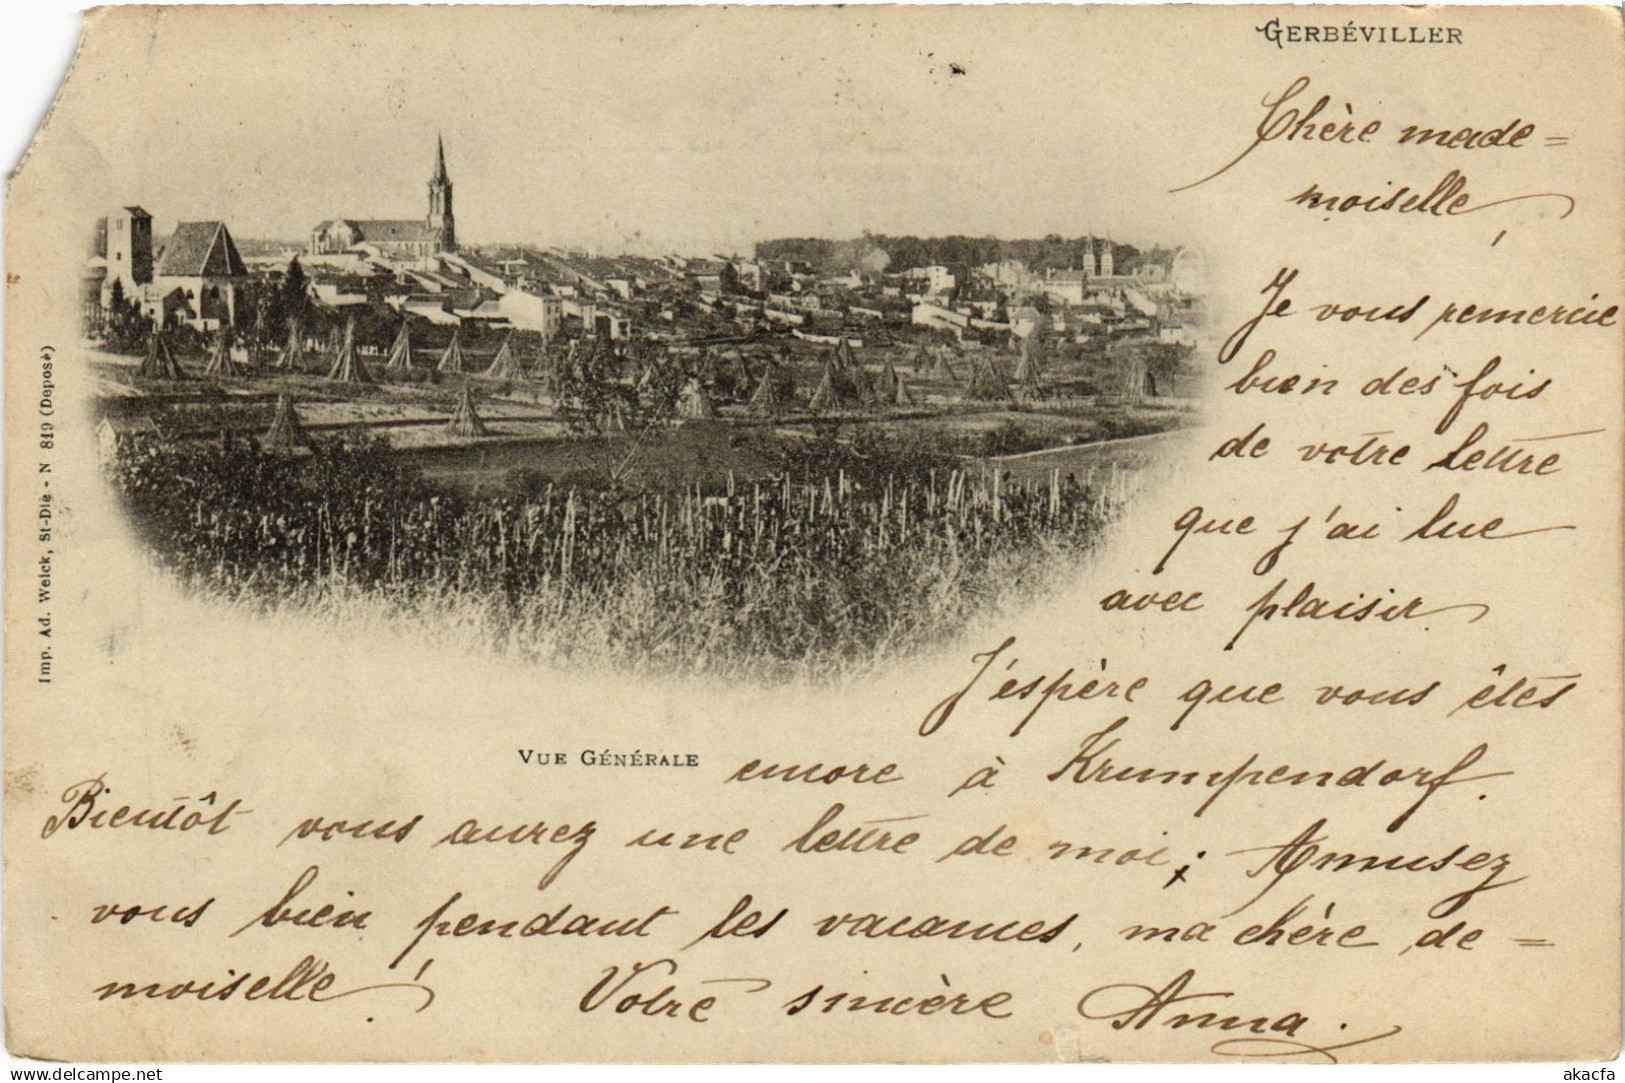 GERBÉVILLER
Chère made=
moiselle,
Je vous remercie
bien des fois
de votre lettre
que j'ai lue
avec plaisir.
J'espère que vous êtes
encore à Krumpendorf.
Bientôt vous aurez une lettre de moi; Amusez
vous bien pendant les vacances, ma chère de=
moiselle!
Votre sincère Anna.
VUE GÉNÉRALE
Imp. Ad. Weick, St-Dié - N 819 (Déposé)
delcampe.net
akacfa